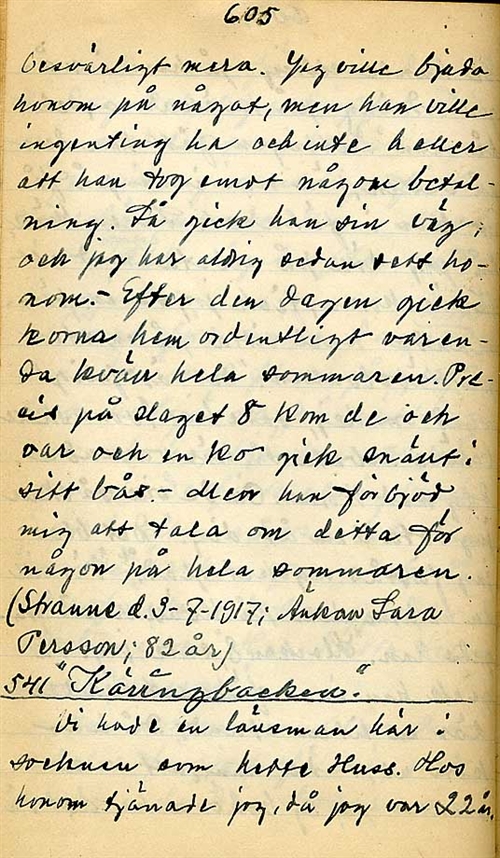 605
besvärligt mera. Jag ville bjuda
honom på något, men han ville
ingenting ha och inte heller
att han tog emot någon betal-
ning. Så gick han sin väg,
och jag har aldrig sedan sett ho-
nom. - Efter den dagen gick
korna hem ordentligt varen-
da kväll hela sommaren. Pre-
cis på slaget 8 kom de och
var och en ko gick snäut i
sitt bås. - Men han förbjöd
mig att tala om detta för
någon på hela sommaren.
(Stranne d. 9-7-1917; Änkan Sara
Persson; 82 år)
541 "Käringbacken."
Vi hade en länsman här i
socknen som hette Huss. Hos
honom tjänade jag, då jag var 22 år,